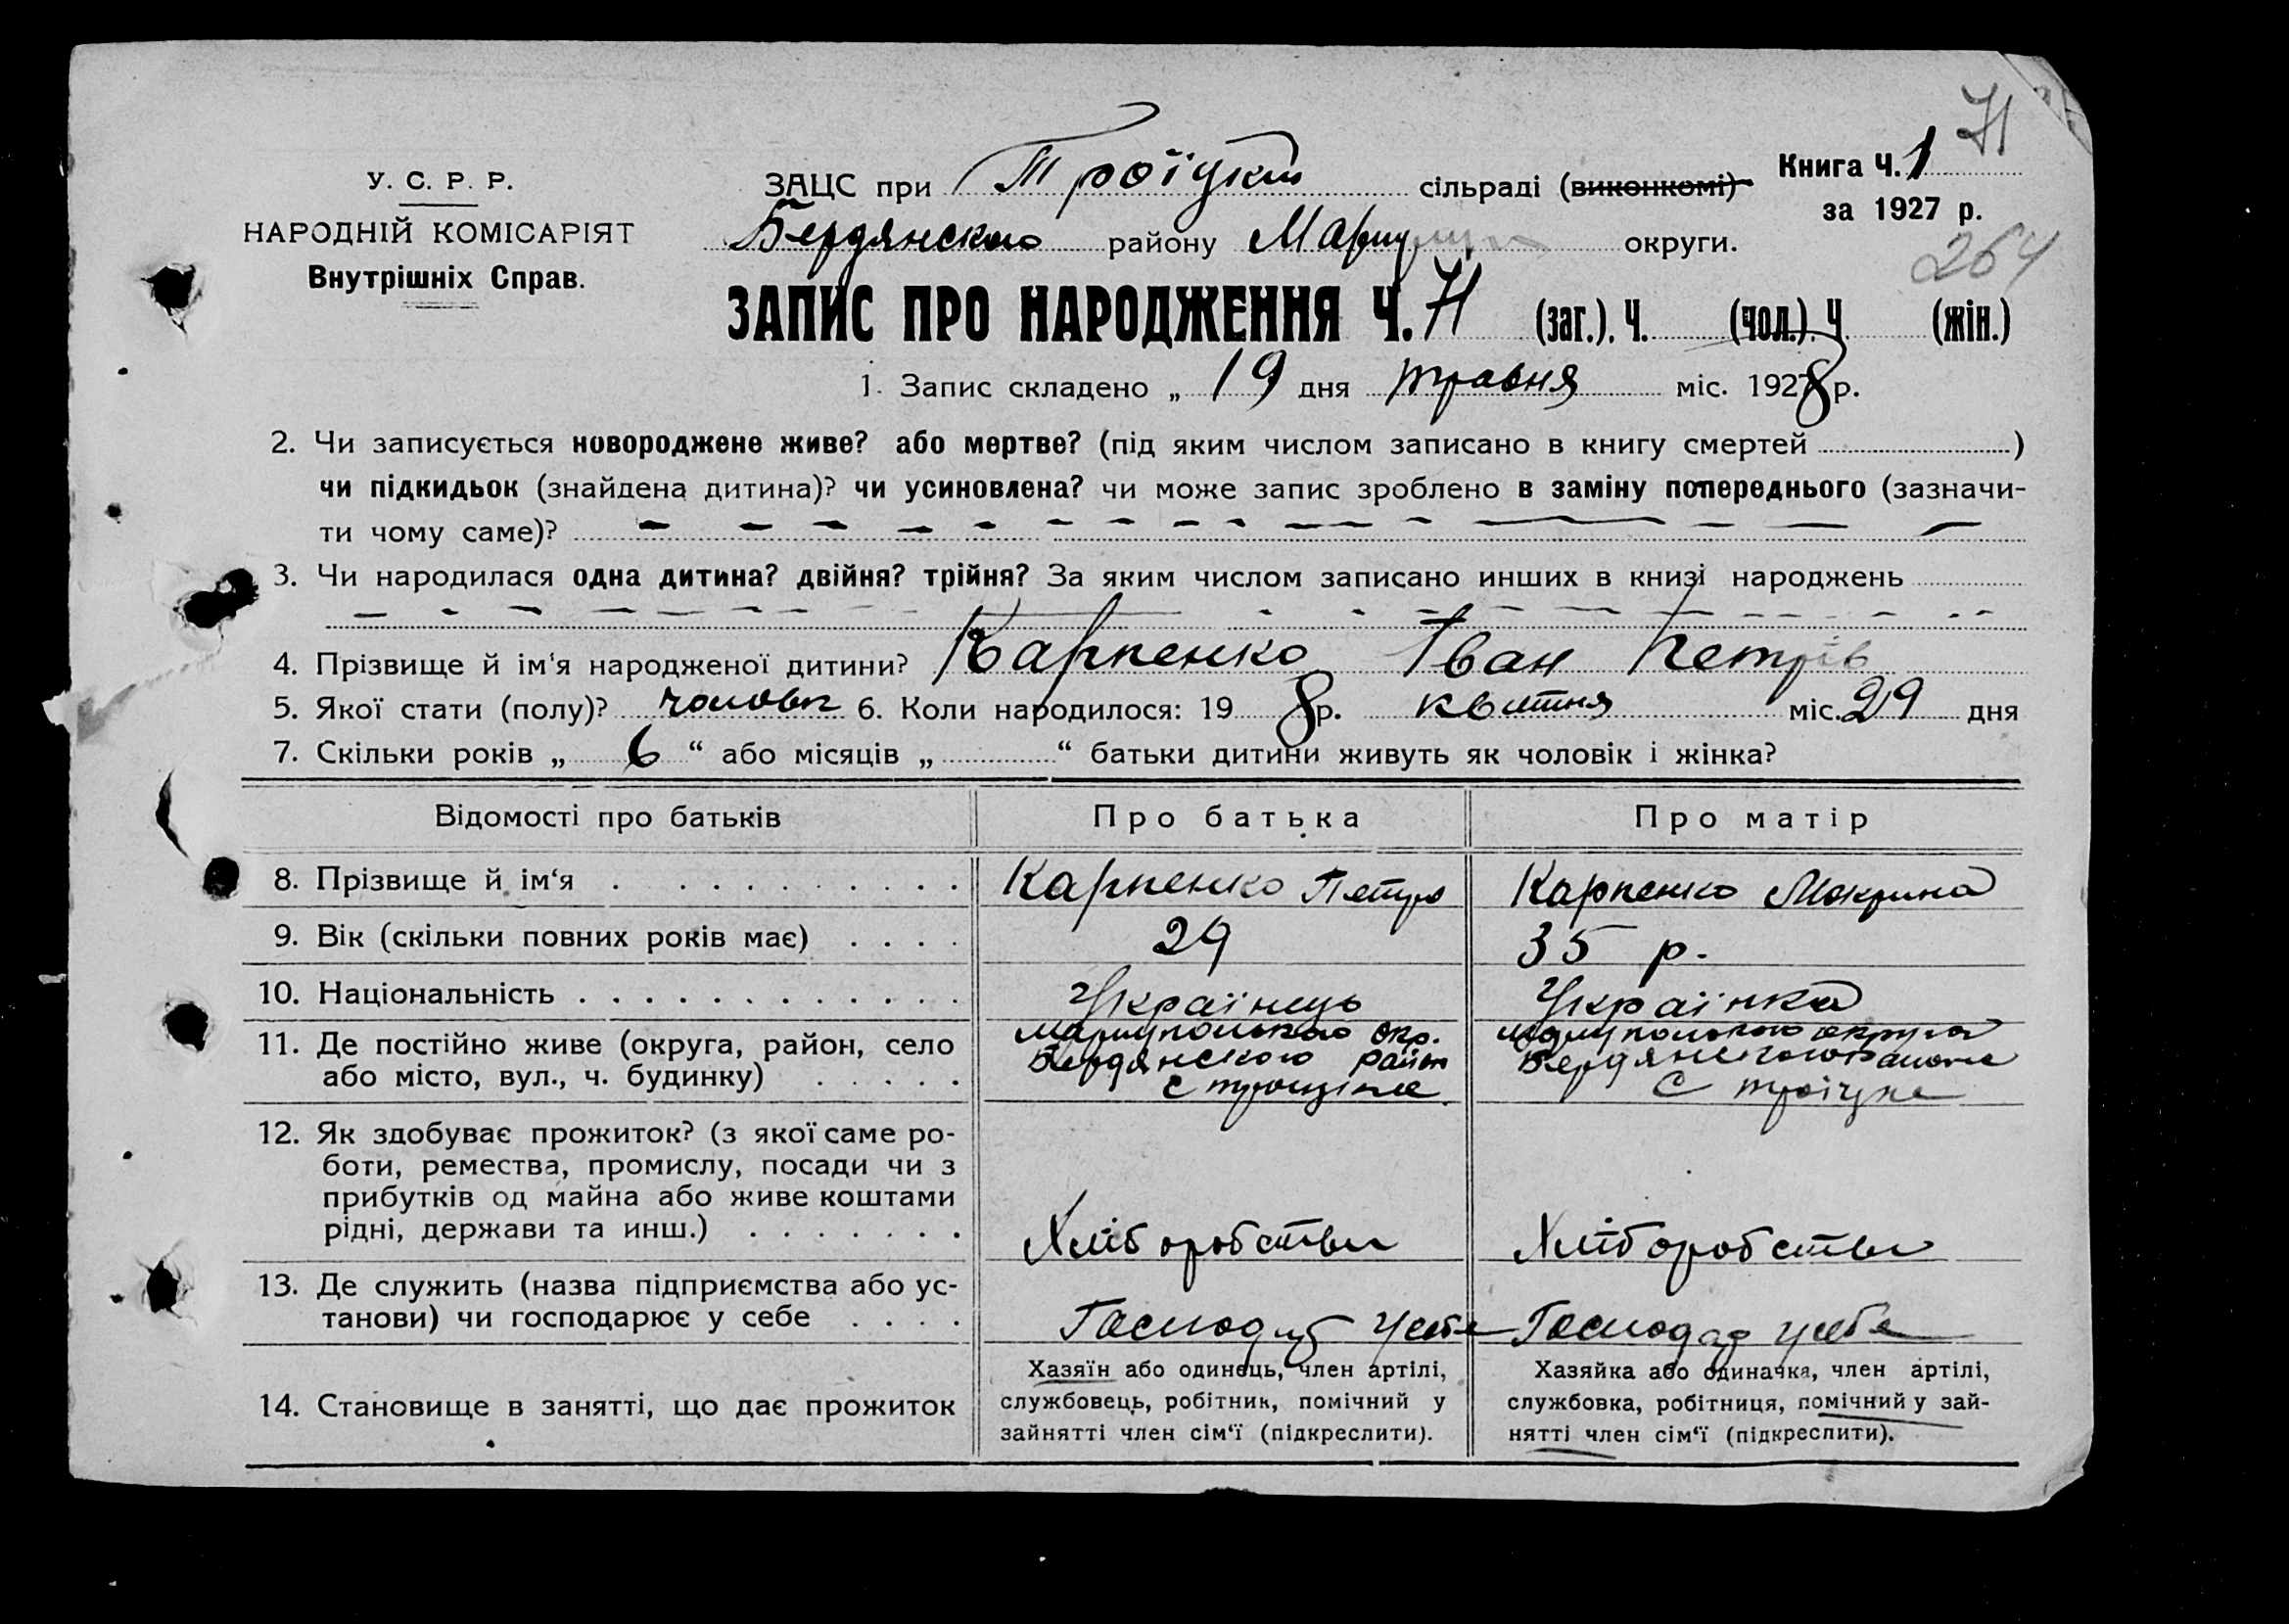 71
У. С. Р. Р.
НАРОДНІЙ КОМІСАРІЯТ
Внутрішніх Справ.
ЗАЦС при Троїцкій сільраді (виконкомі)
Книга Ч. 1
за 1927 р.
Бердянского району Мариуп округи.
264
ЗАПИС ПРО НАРОДЖЕННЯ Ч. 71 (заг.). Ч. (чол.). Ч. (жін.)
1. Запис складено „ 19 дня травня міс. 1928 р.
2. Чи записується новороджене живе? або мертве? (під яким числом записано в книгу смертей )
чи підкидьок (знайдена дитина)? чи усиновлена? чи може запис зроблено в заміну попереднього (зазначи-
ти чому саме)?
3. Чи народилася одна дитина? двійня? трійня? За яким числом записано инших в книзі народжень
4. Прізвище й ім'я народженої дитини? Карпенко Іван Петрів
5. Якої стати (полу)? чоловік 6. Коли народилося: 19 8 р. квітня міс. 29 дня
7. Скільки років „ 6 “ або місяців „ “ батьки дитини живуть як чоловік і жінка?
Відомості про батьків Про батька Про матір
8. Прізвище й ім‘я Карпенко Петро Карпенко Мокрина
9. Вік (скільки повних років має) 29 35 р.
10. Національність Українець Українка
11. Де постійно живе (округа, район, село
або місто, вул., ч. будинку)
Мариупольского окр.
Бердянского район
с троицке
Мариупольского округа
Бердянского района
с троїцке
12. Як здобуває прожиток? (з якої саме ро-
боти, ремества, промислу, посади чи з
прибутків од майна або живе коштами
рідні, держави та инш.)
Хліборобством Хліборобством
13. Де служить (назва підприємства або ус-
танови) чи господарює у себе
Господар у себе Господар у себе
14. Становище в занятті, що дає прожиток
Хазяїн або одинець, член артілі,
службовець, робітник, помічний у
зайнятті член сім‘ї (підкреслити).
Хазяйка або одиначка, член артілі,
службовка, робітниця, помічний у зай-
нятті член сім‘ї (підкреслити).